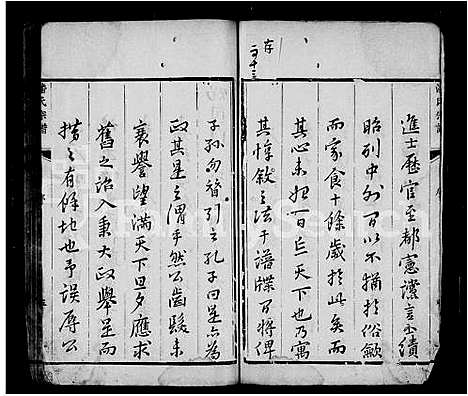 存
二十三
進士歷官至都憲讜言丕績
昭列中外百以不猶於俗歛
而家食十餘歲於此矣而
其心未始一日忘天下也乃寓
其惇敘之法于譜牒而將俾
子孫勿替引之孔子曰是亦為
政其是之謂乎然公齒髮未
衰譽望滿天下旦夕應求
舊之詔入秉大政舉是而
措之有餘地也予誤辱公
潘氏宗譜